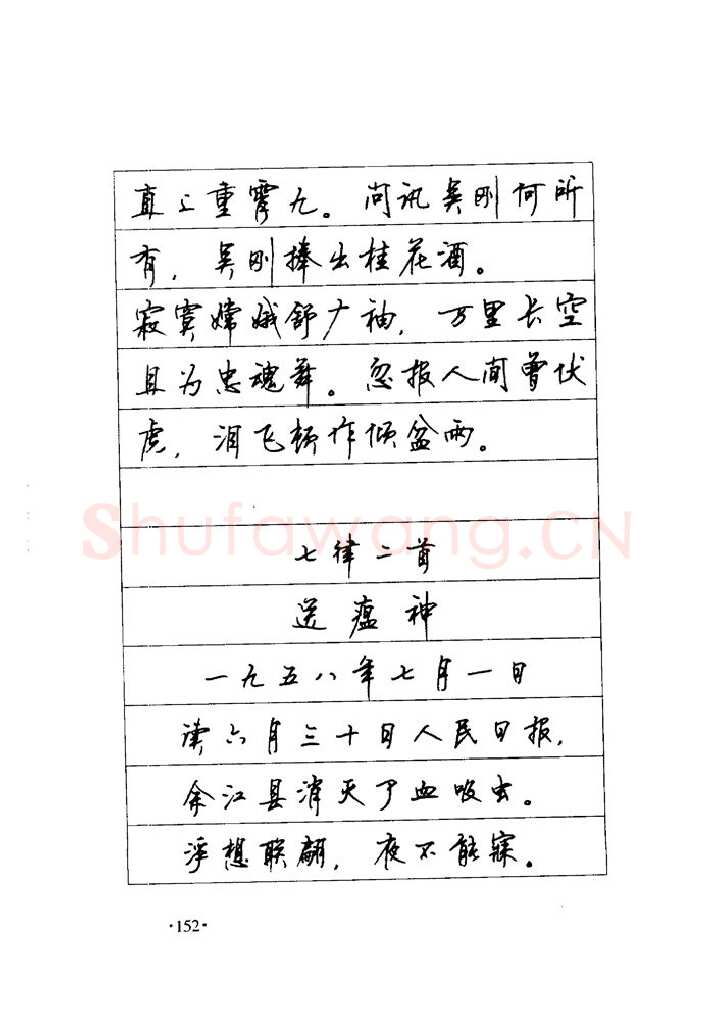 直上重霄九。问讯吴刚何所
有，吴刚捧出桂花酒。
寂寞嫦娥舒广袖，万里长空
且为忠魂舞。忽报人间曾伏
虎，泪飞顿作倾盆雨。
Shufawang.CN
七律二首
送瘟神
一九五八年七月一日
读六月三十日人民日报，
余江县消灭了血吸虫。
浮想联翩，夜不能寐。
·152·